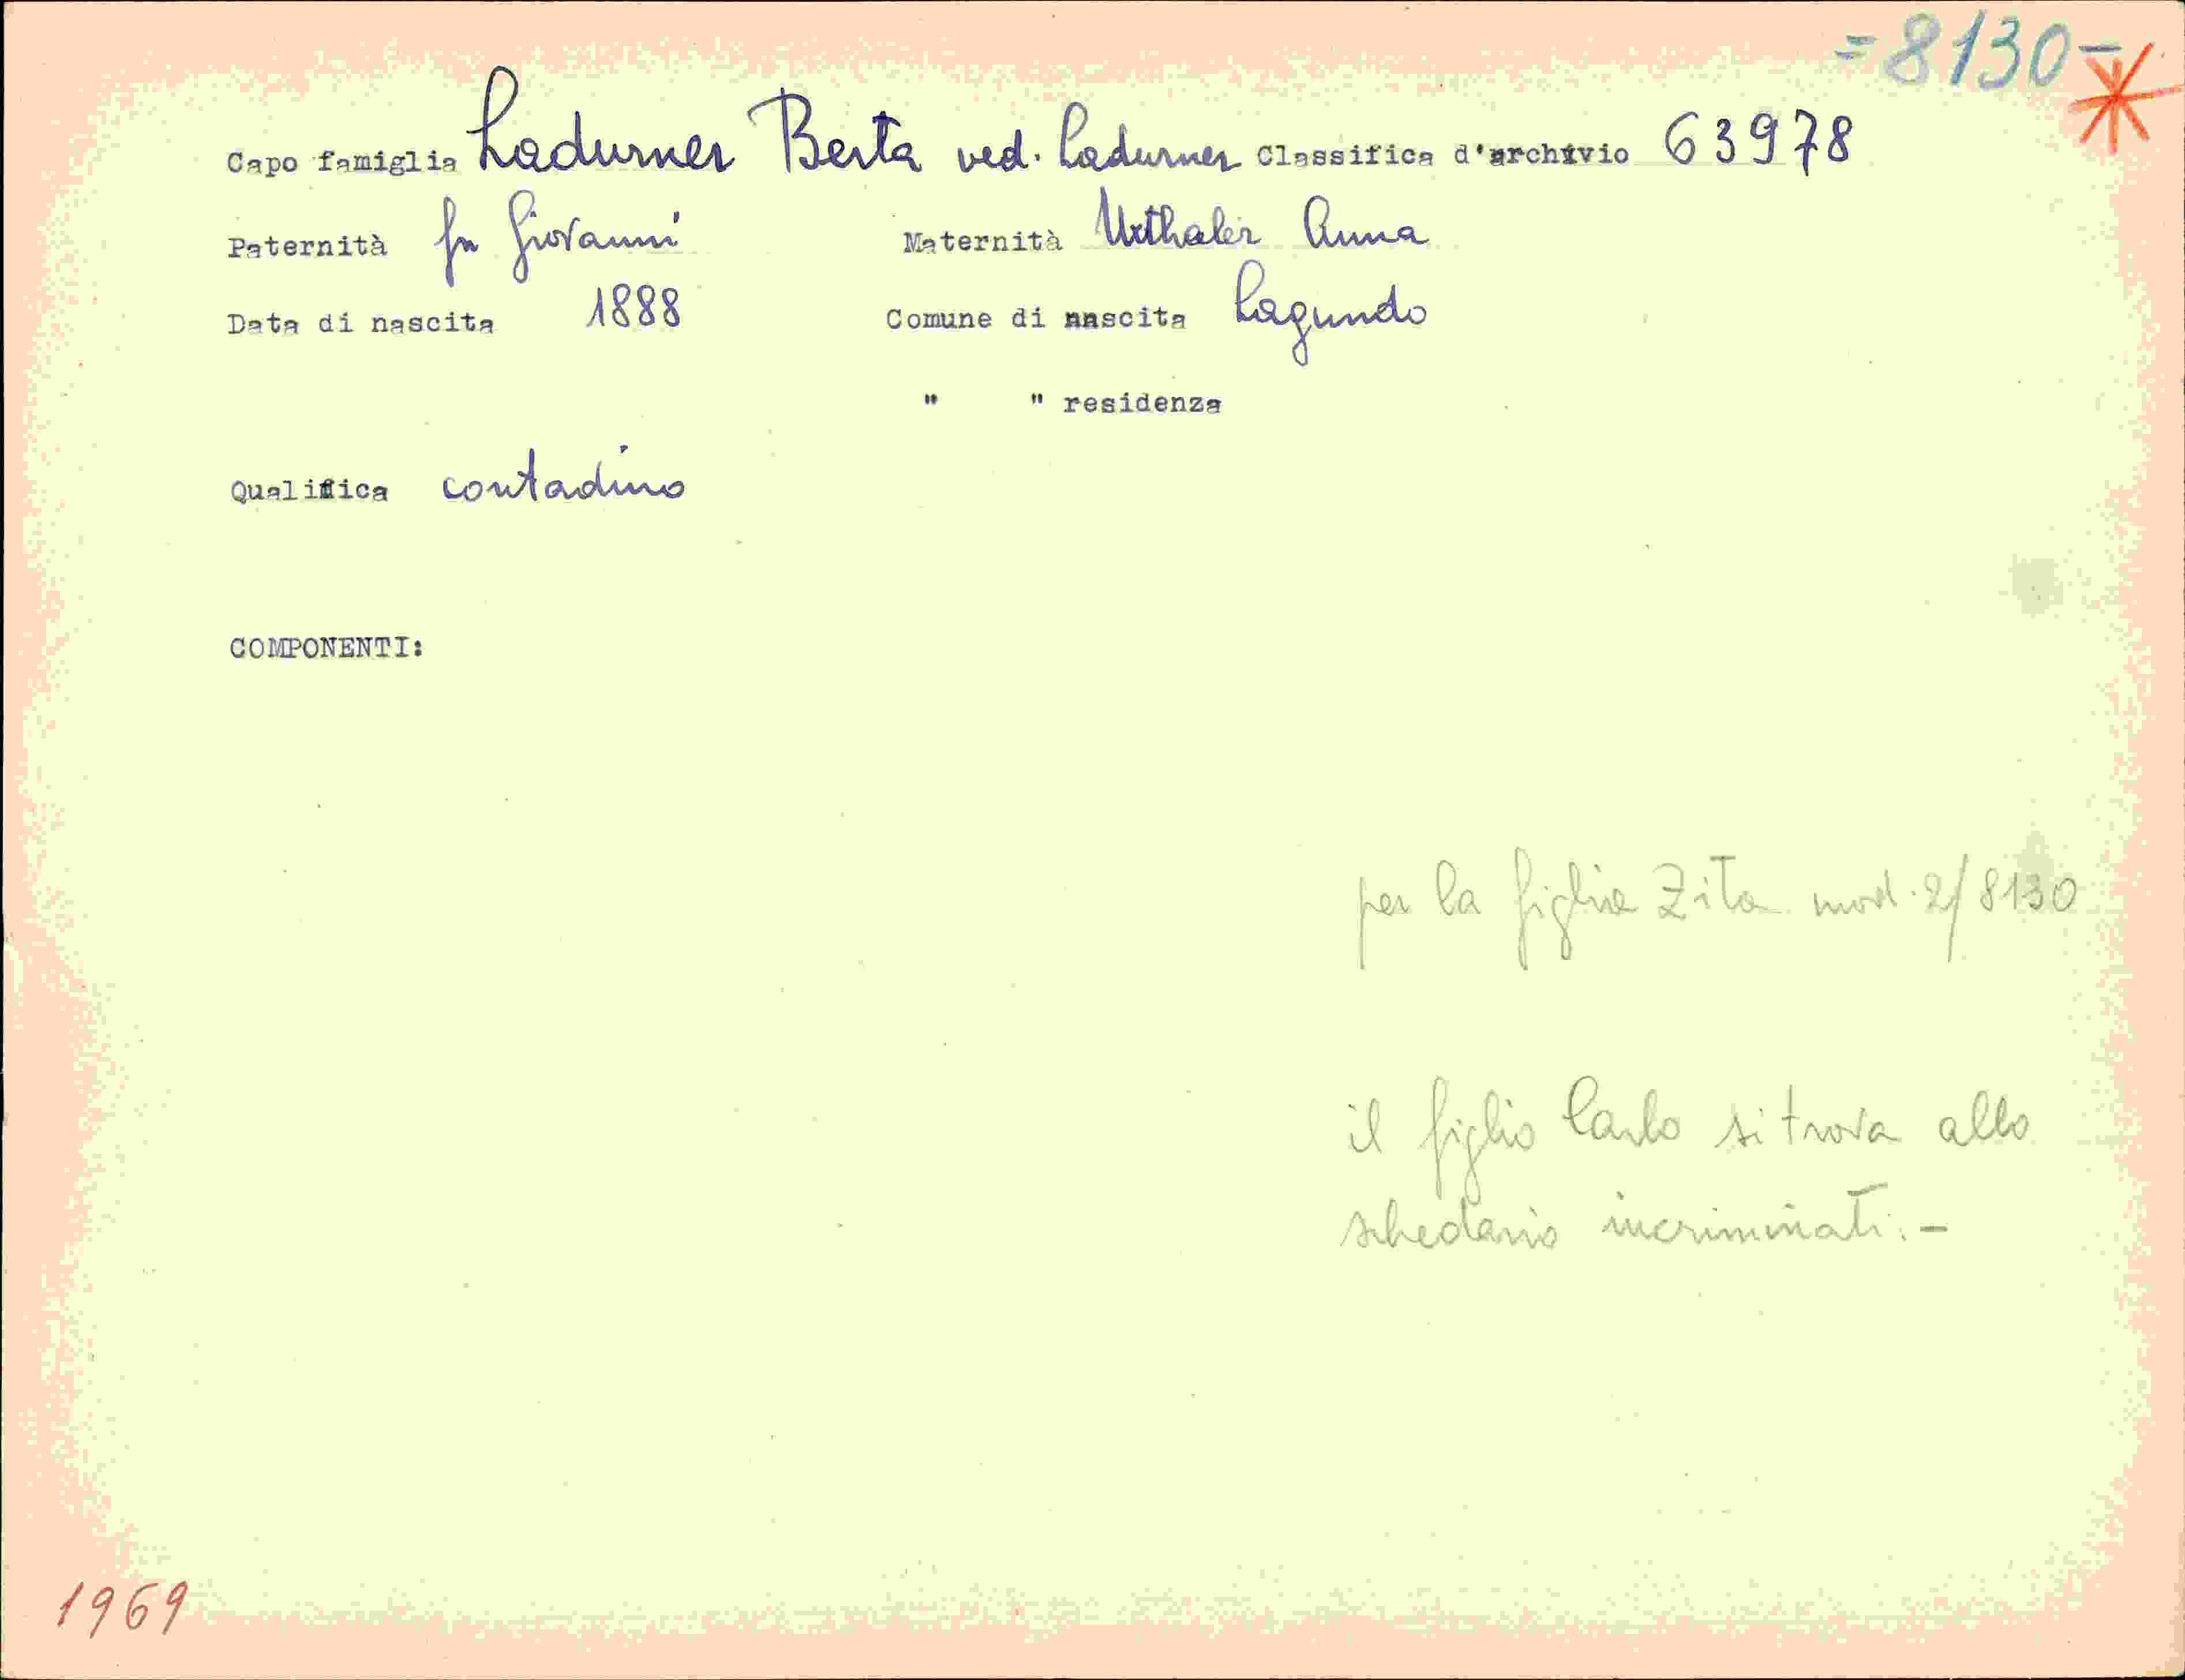 =8130=
Capo famiglia Ladurner Berta ved. Ladurner Classifica d'archivio 63978
Paternità fu Giovanni Maternità Urthaler Anna
Data di nascita 1888 Comune di nascita Lagundo
" " residenza
Qualifica contadino
COMPONENTI:
per la figlia Zita mod. 2/8130
il figlio Carlo si trova allo
schedario incriminati.-
1969